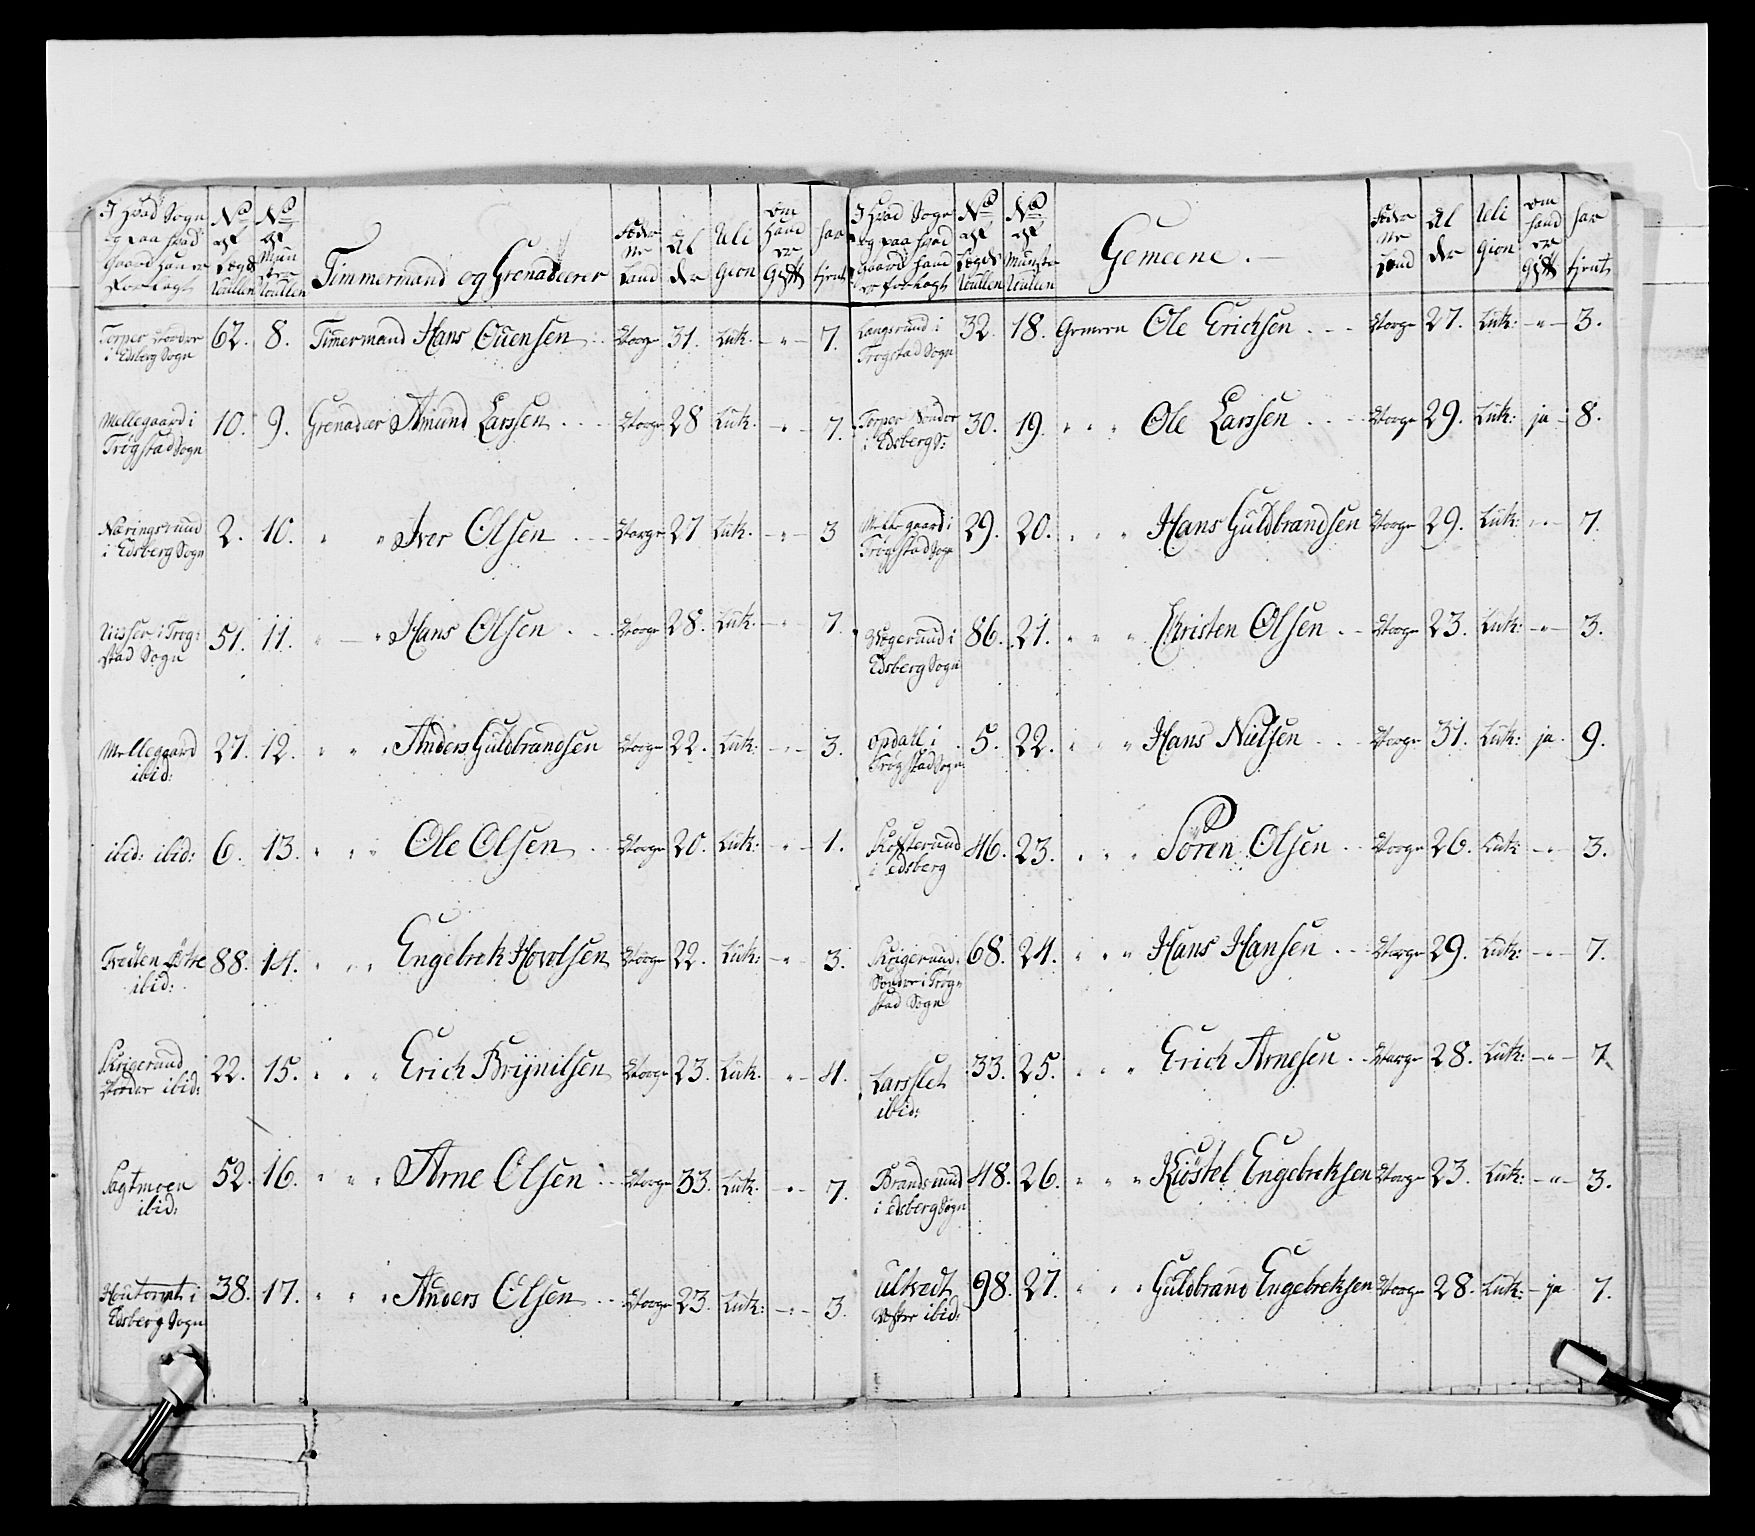 I hvad Sogn og paa hvad Gaard han er forlagt | No af Lægds Rullen | No af Mönster Rullen | Timmermand og Grenadeerer | Föde Land | Al der | Reli gion | om hand er Gift | har tjent
Torper Nordre i Edsberg Sogn 62. 8. Timmermand Hans Ouensen Norge 31. Luth. - " - 7.
Mellegaard i Trøgstad Sogn 10. 9. Grenadeer Amund Larssen Norge 28 Luth. - " - 7.
Næringsruud i Edsberg Sogn 2. 10. " " Iver Olsen Norge 27 Luth. - " - 3
51. 11. " " Hans Olsen Norge 28. Luth. - " - 7.
Mellegaard ibid: 27. 12. " " " Anders Guldbrandsen Norge 22. Luth: - " - 3.
ibid: ibid: 6. 13. " " " Ole Olsen Norge 20. Luth: - " - 1.
Tveten Østre ibid: 88. 14. " " " Engebrek Hovelsen Norge 22. Luth: - " - 3.
Skrigerud Nordre ibid: 22. 15. " " " Erich Brynilsen Norge 23. Luth. - " - 4.
Sagtmoen ibid: 52. 16. " " " Arne Olsen Norge 33. Luth. - " - 7.
i Edsberg Sogn 38. 17. " " " Anders Olsen Norge 23. Luth: - " - 3.
I hvad Sogn og paa hvad Gaard hand er forlagt | No af Lægds Rullen | No af Mönster Rullen | Gemeene. | Föde Land | Al der | Reli gion | om hand er Gift | har tjent
Langsruud i Trøgstad Sogn 32. 18. Gemeen Ole Erichsen Norge 27. Luth: - " - 3.
Torper Nordre i Edsberg S: 30. 19. " " " Ole Larssen Norge 29. Luth: ja 8.
Mellegaard i Trøgstad Sogn 29. 20. " " " Hans Guldbrandsen Norge 29. Luth: - " - 7.
i Edsberg Sogn 86. 21. " " " Christen Olsen Norge 23. Luth: - " - 3.
Opdahl i Trøgstad Sogn 5. 22. " " " Hans Nielsen Norge 31. Luth: ja. 9.
i Edsberg 46. 23. " " " Sören Olsen Norge 26. Luth: - " - 3.
Skrigerud Söndre i Trøgstad Sogn 68. 24. " " " Hans Hansen Norge 29. Luth: - " - 7.
Larsslet ibid: 33. 25. " " " Erich Arnesen Norge 28. Luth: - " - 7
Brandsruud i Edsberg Sogn 48. 26. " " " Kiöstel Engebreksen Norge 23. Luth: - " - 3.
Ulvedt Vestre ibid: 98. 27. " " " Guldbrand Engebreksen Norge 28. Luth: - ja 7.